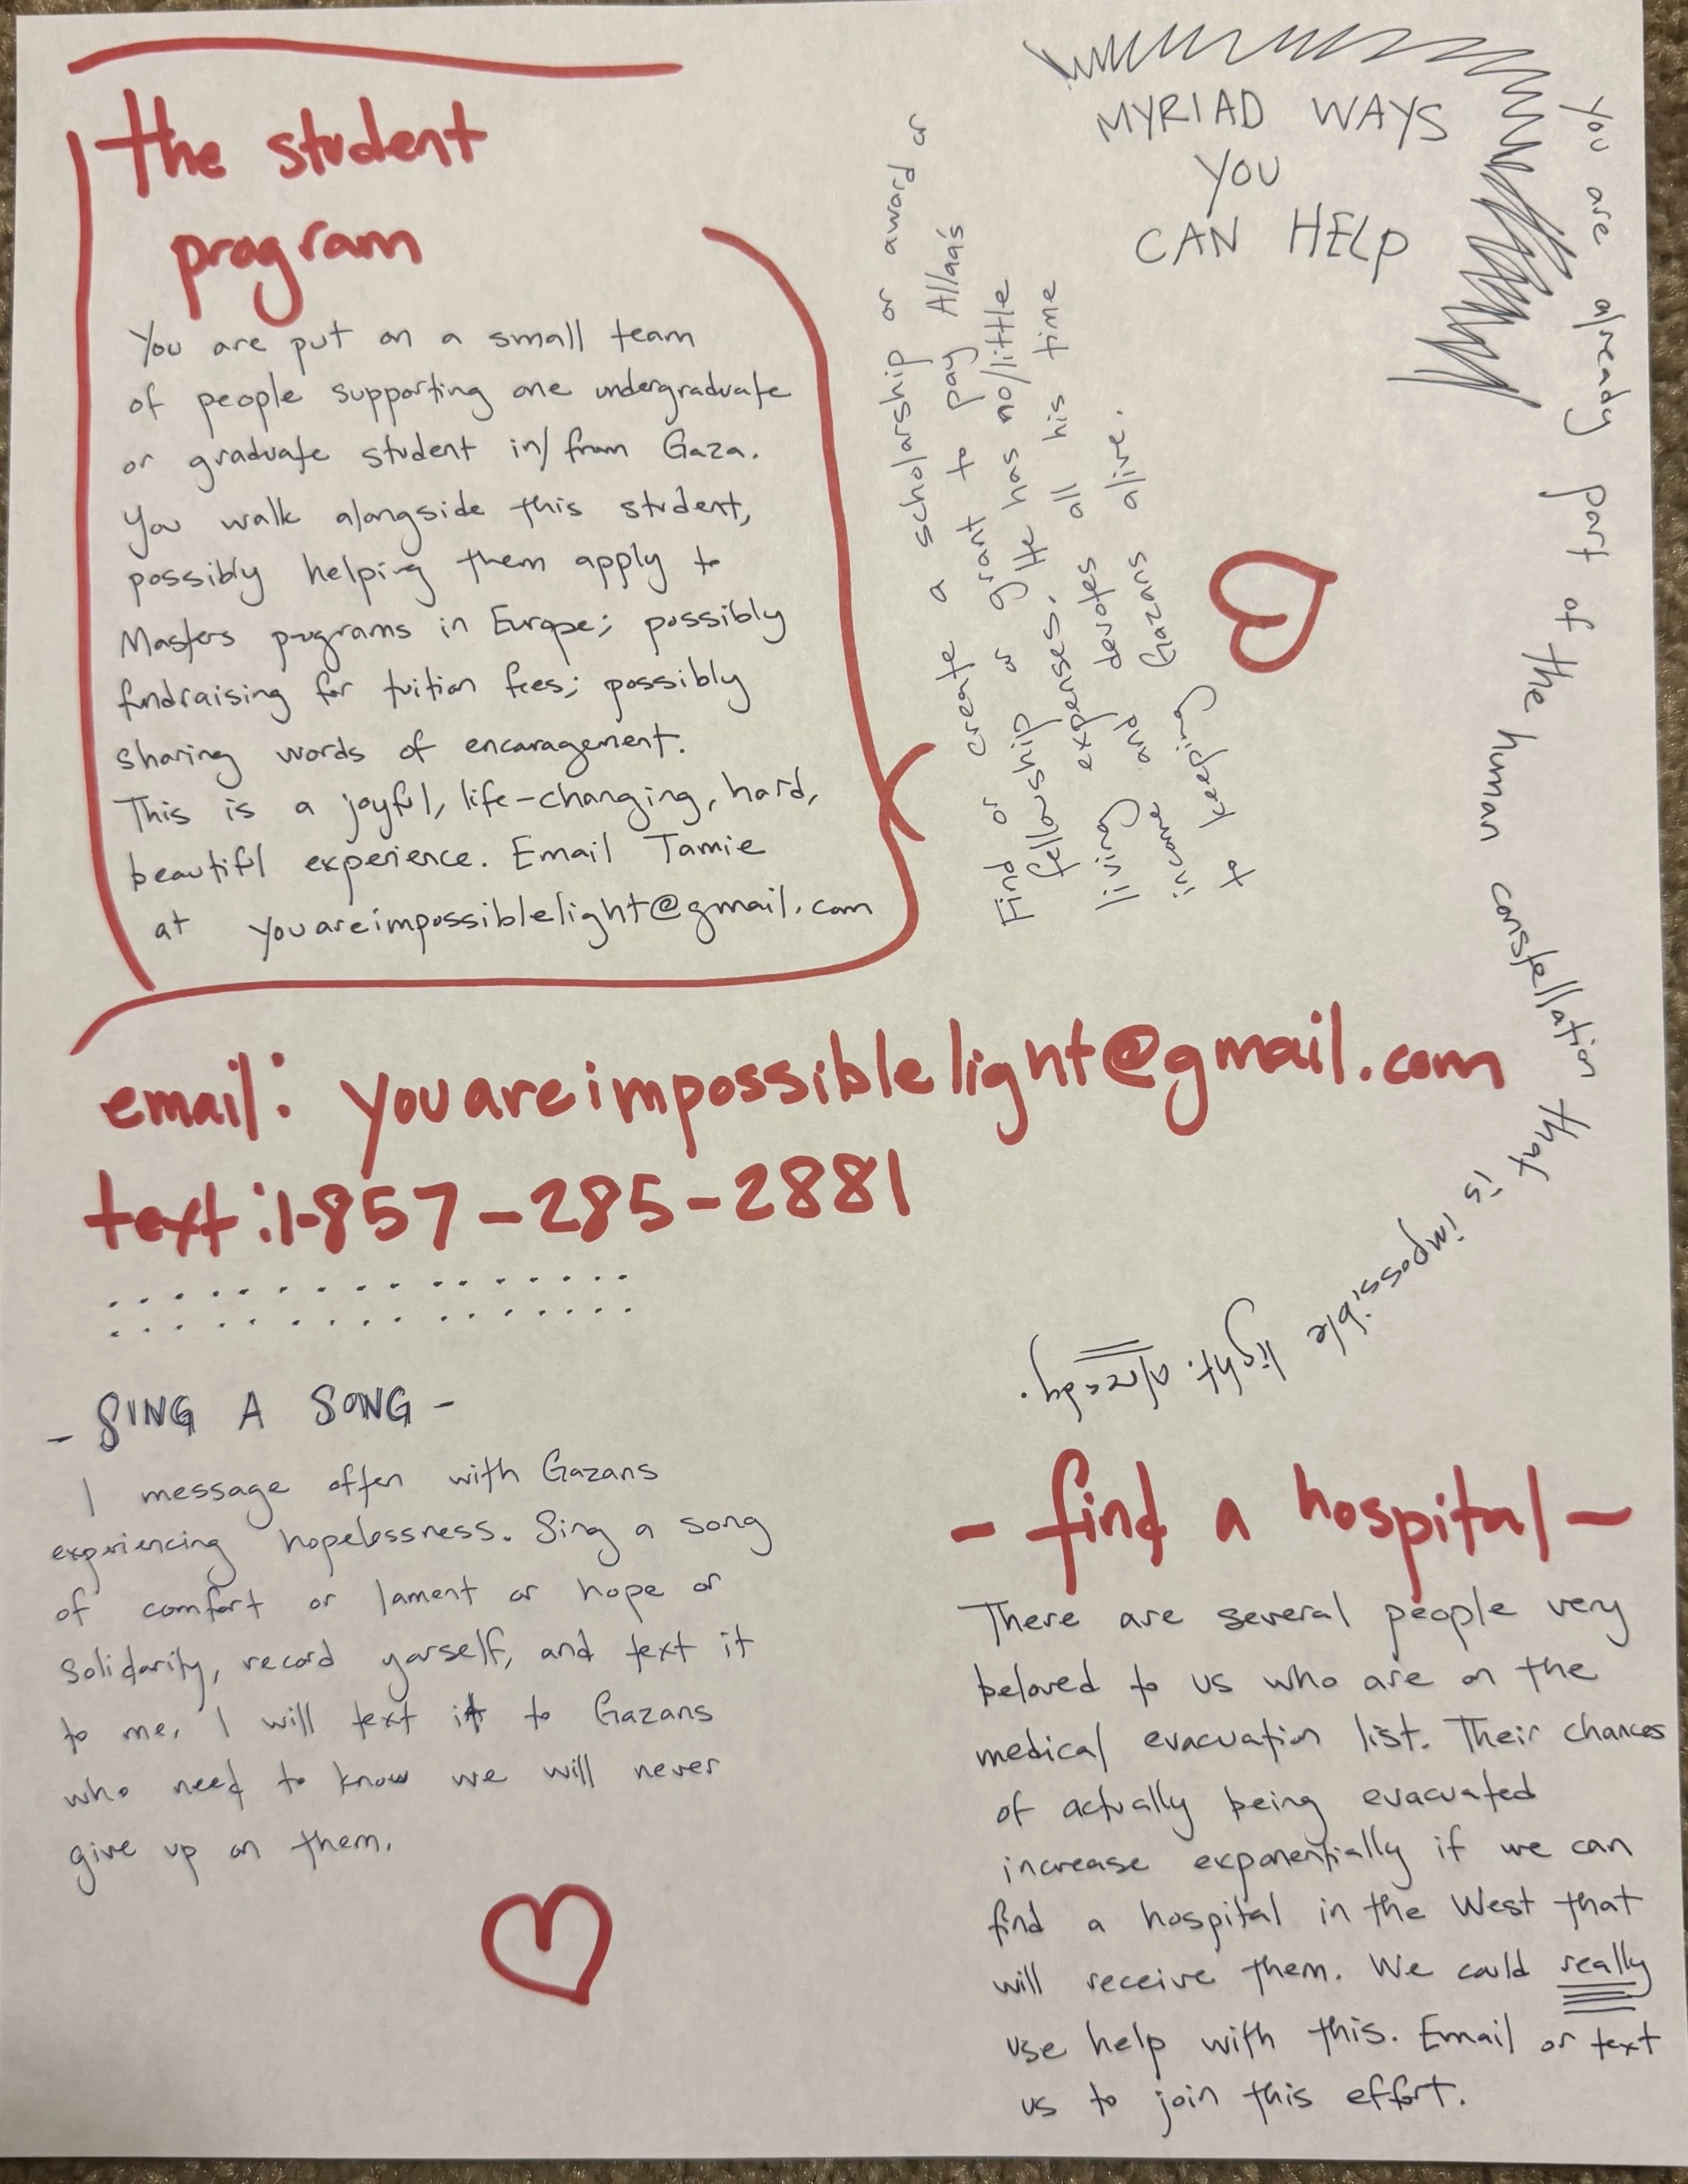 MYRIAD WAYS
YOU
CAN HELP
the student
program
You are put on a small team
of people supporting one undergraduate
or graduate student in/from Gaza.
You walk alongside this student,
possibly helping them apply to
Masters programs in Europe; possibly
fundraising for tuition fees; possibly
sharing words of encouragement.
This is a joyful, life-changing, hard,
beautiful experience. Email Tamie
at youareimpossiblelight@gmail.com
Find or create a scholarship or award or
fellowship or grant to pay Allaa's
living expenses. He has no/little
income and devotes all his time
to keeping Gazans alive.
You are already part of the human constellation that is impossible light. Already.
email: youareimpossiblelight@gmail.com
text: 1-857-285-2881
- SING A SONG -
I message often with Gazans
experiencing hopelessness. Sing a song
of comfort or lament or hope or
solidarity, record yourself, and text it
to me. I will text it to Gazans
who need to know we will never
give up on them.
- find a hospital -
There are several people very
beloved to us who are on the
medical evacuation list. Their chances
of actually being evacuated
increase exponentially if we can
find a hospital in the West that
will receive them. We could really
use help with this. Email or text
us to join this effort.